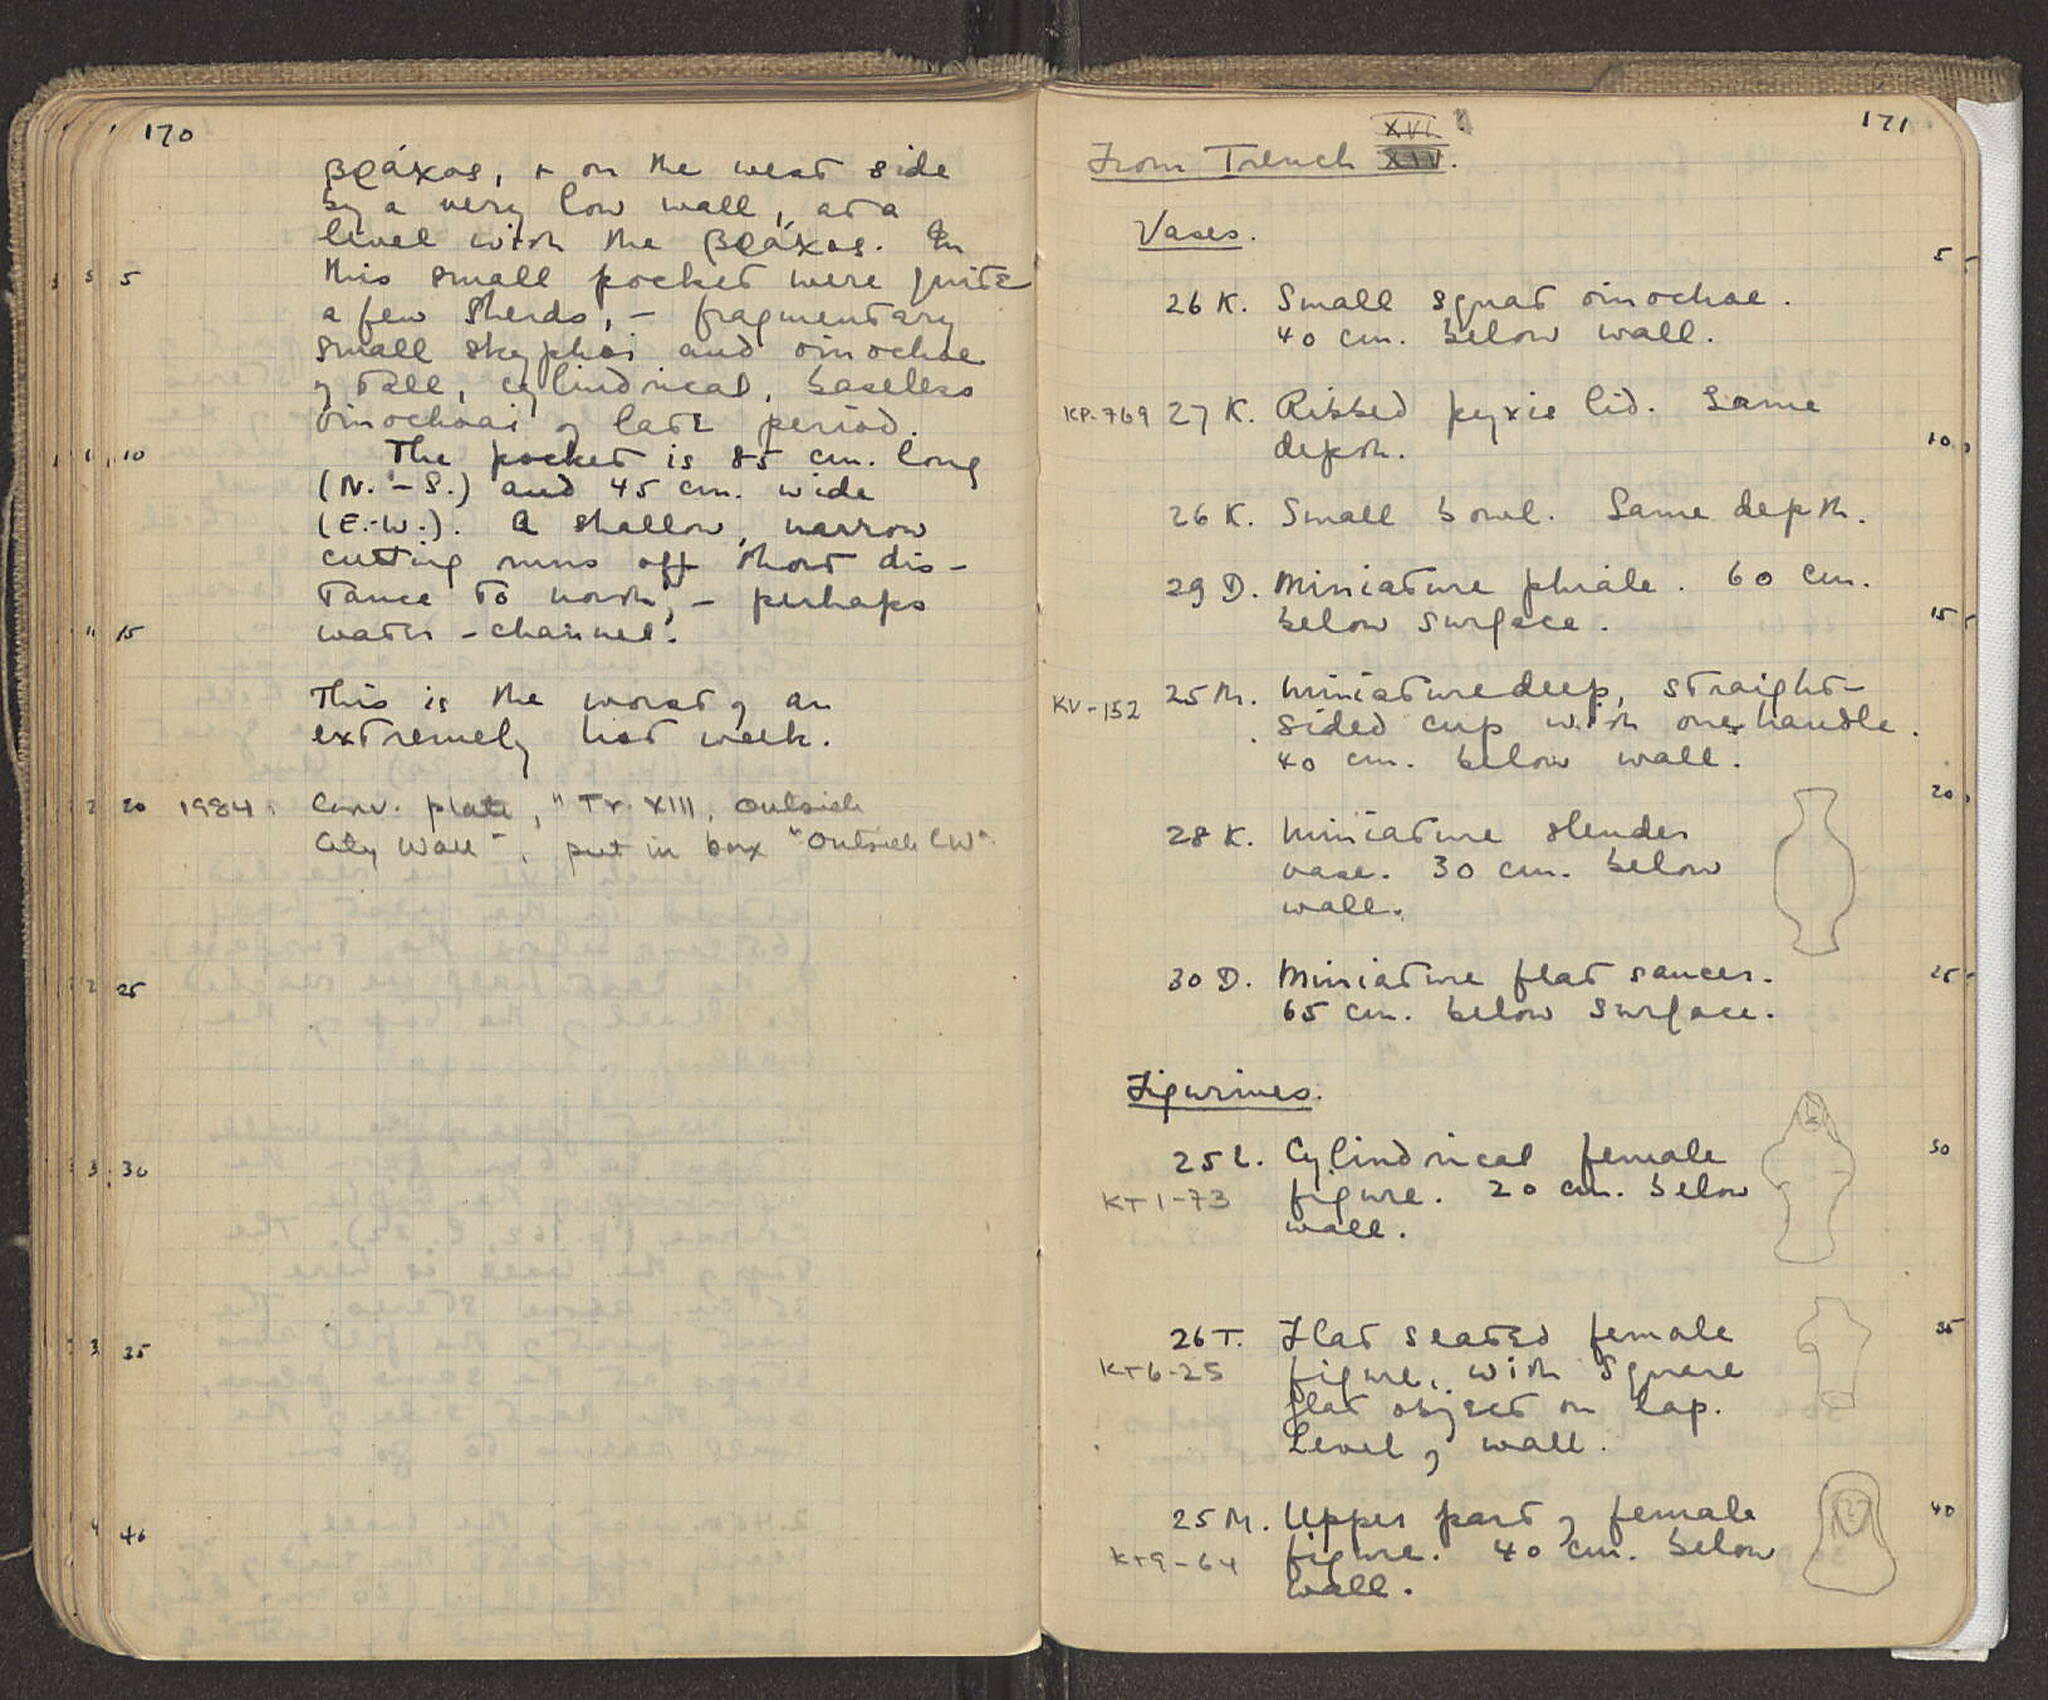 170
βράχος, + on the west side
by a very low wall, at a
level with the βράχος. In
this small pocket were quite
a few sherds, – fragmentary
small skyphoi and oinochoe
of tall, cylindrical, baseless
oinochoai of late period.
The pocket is 85 cm. long
(N. – S.) and 45 cm. wide
(E.-W.). A shallow, narrow
cutting runs off short dis-
tance to north, – perhaps
water-channel.
This is the worst of an
extremely hot week.
1984: Conv. plate, "Tr. XIII, Outside
City Wall", put in box "Outside CW"
5
10
15
20
25
30
35
40
171
XVI
From Trench XIV.
Vases.
26 K. Small squat oinochoe.
40 cm. below wall.
KP-769 27 K. Ribbed pyxis lid. Same
depth.
26 K. Small bowl. Same depth.
29 D. Miniature phiale. 60 cm.
below surface.
KV-152 25 M. Miniature deep, straight-
sided cup with one handle.
40 cm. below wall.
28 K. Miniature slender
vase. 30 cm. below
wall.
30 D. Miniature flat saucer.
65 cm. below surface.
Figurines.
25 L. Cylindrical female
KT 1-73 figure. 20 cm. below
wall.
26 T. Flat seated female
KT 6-25 figure, with square
flat object on lap.
Level of wall.
25 M. Upper part of female
KT9-64 figure. 40 cm. below
wall.
5
10
15
20
25
30
35
40